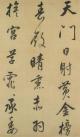 天門日射黃金榜
春殿晴熏赤羽
旗宮草霏霏承委